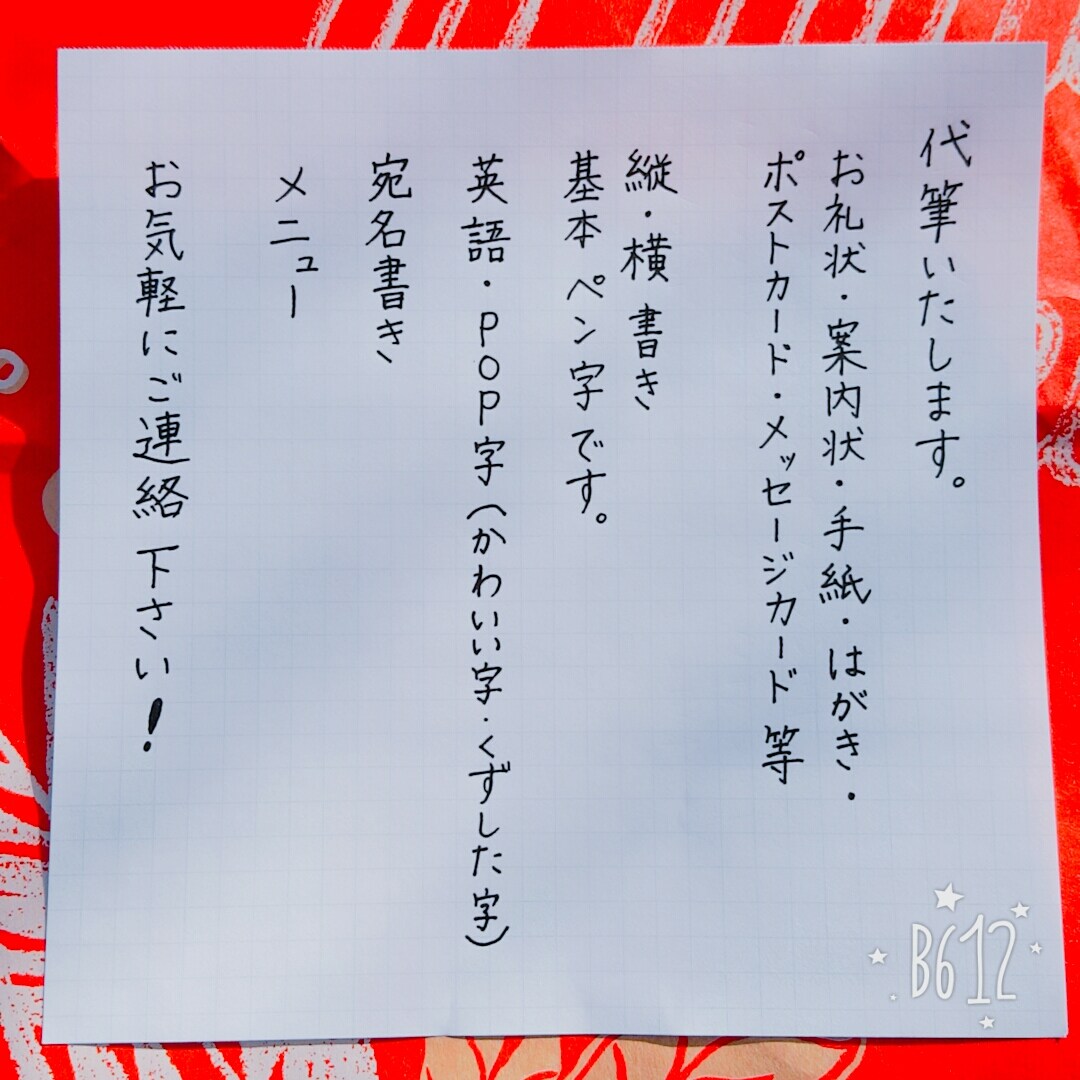 代筆いたします。
お礼状・案内状・手紙・はがき・
ポストカード・メッセージカード等
縦・横書き
基本ペン字です。
英語・POP字(かわいい字・くずした字)
宛名書き
メニュー
お気軽にご連絡下さい!
B612